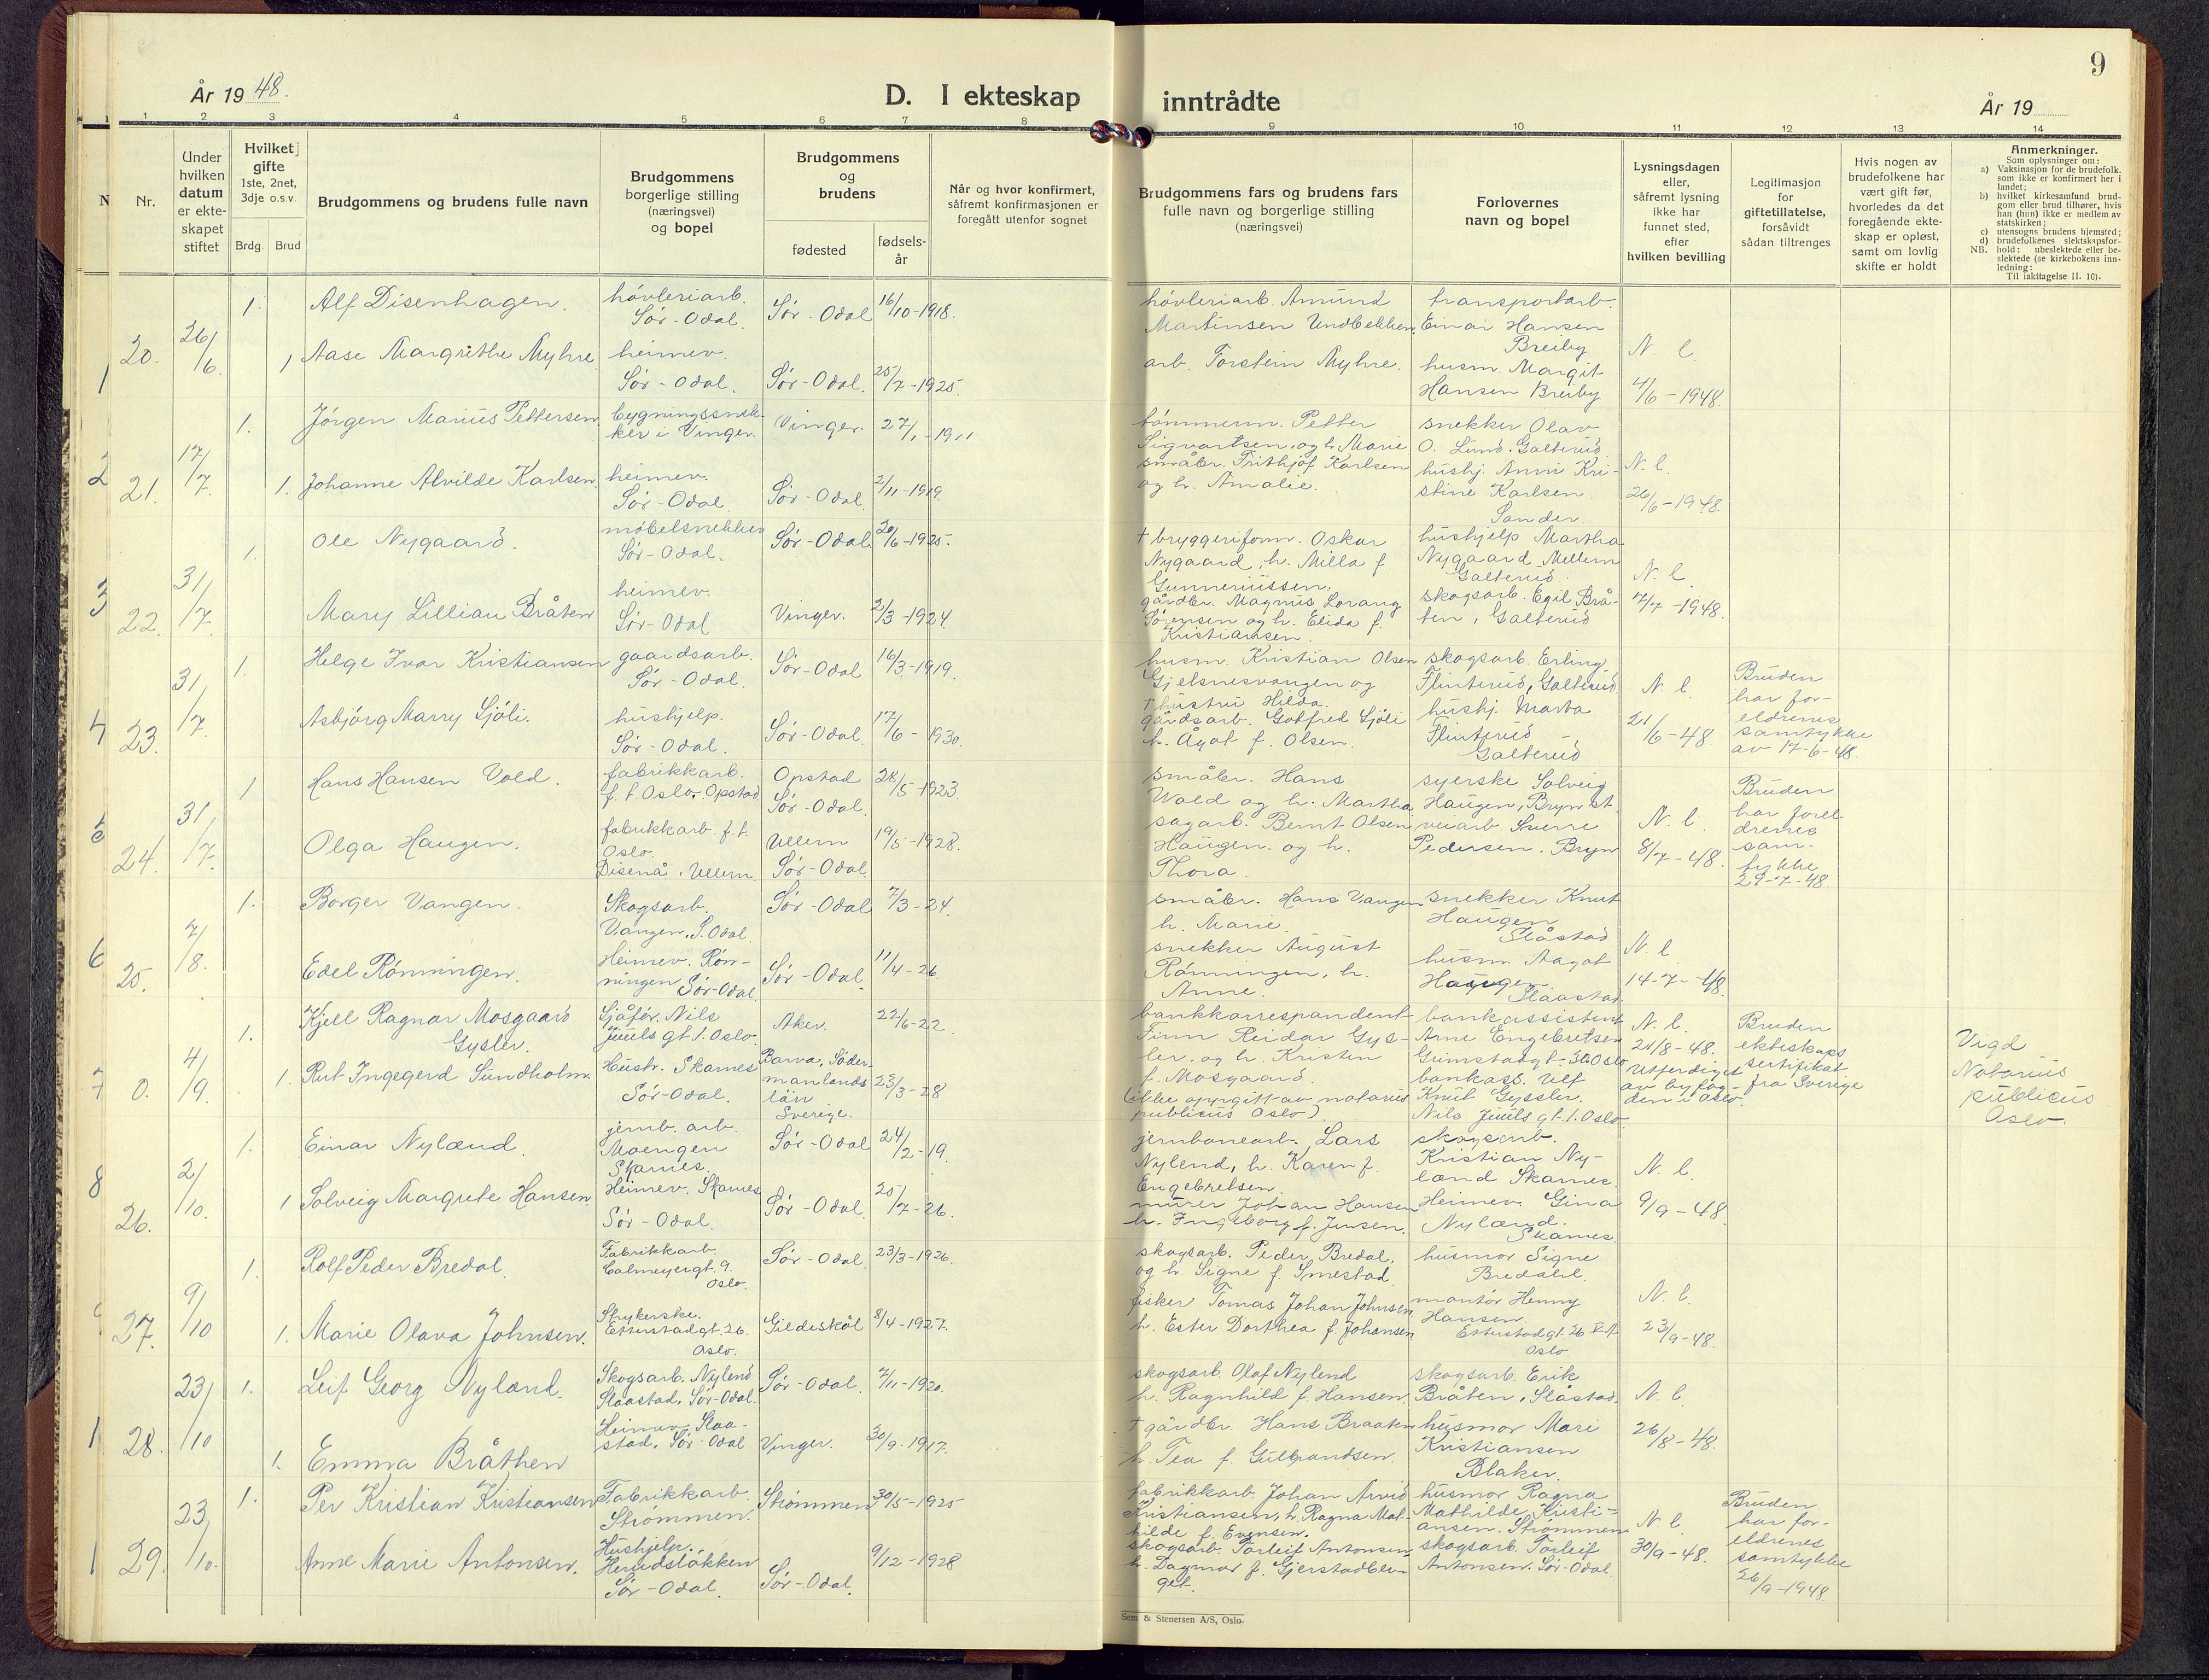 9
År 1948.
D. I ekteskap inntrådte
År 19
1 2 3 4 5 6 7 8 9 10 11 12 13 14
Nr.
Under hvilken datum er ekteskapet stiftet
Hvilket gifte 1ste, 2net, 3dje o.s.v.
Brdg. Brud
Brudgommens og brudens fulle navn
Brudgommens borgerlige stilling (næringsvei) og bopel
Brudgommens og brudens
fødested
fødselsår
Når og hvor konfirmert, såfremt konfirmasjonen er foregått utenfor sognet
Brudgommens fars og brudens fars fulle navn og borgerlige stilling (næringsvei)
Forlovernes navn og bopel
Lysningsdagen eller, såfremt lysning ikke har funnet sted, efter hvilken bevilling
Legitimasjon for giftetillatelse, forsåvidt sådan tiltrenges
Hvis nogen av brudefolkene har vært gift før, hvorledes da det foregående ekteskap er opløst, samt om lovlig skifte er holdt
Anmerkninger.
Som oplysninger om:
a) Vaksinasjon for de brudefolk. som ikke er konfirmert her i landet;
b) hvilket kirkesamfund brudgom eller brud tilhører, hvis han (hun) ikke er medlem av statskirken;
c) utensogns brudens hjemsted;
d) brudefolkenes slektskapsforhold: ubeslektede eller beslektede (se kirkebokens innledning:
NB.
Til iakttagelse II. 10).
20. 26/6.
1. Alf Disenhagen. høvleriarb. Sør-Odal. Sør-Odal 16/10-1918.
høvleriarb. Amund Martinsen Undbekken
transportarb. Einar Hansen Breiby
1 Aase Margrethe Myhre heimev. Sør-Odal. Sør-Odal. 25/7-1925.
arb. Torstein Myhre.
husm. Margit Hansen Breiby
N. l. 4/6-1948.
21. 17/7.
1. Jørgen Marius Pettersen bygningssnekker i Vinger. Vinger. 27/1-1911
tømmerm. Petter Sigvartsen, og h. Marie
snekker Olav O. Lund. Galterud
1. Johanne Alvilde Karlsen. heimev. Sør-Odal. Sør-Odal 2/11-1919.
småbr. Frithjof Karlsen og h. Amalie.
hushj. Anni Kristine Karlsen Sander
N. l. 26/6-1948.
22. 31/7.
1. Ole Nygaard. møbelsnekker Sør-Odal. Sør-Odal. 20/6-1925.
+ bryggeriform. Oskar Nygaard, h. Milla f. Gunneriussen.
hushjelp Martha Nygaard Mellem Galterud
Mary Lillian Bråten heimev. Sør-Odal Vinger. 2/3-1924.
gårdbr. Magnus Lorang Sørensen og h. Elida f. Kristiansen.
skogsarb. Egil Bråten, Galterud
N. l. 7/7-1948.
23. 31/7.
1. Helge Ivar Kristiansen gaardsarb. Sør-Odal. Sør-Odal 16/3-1919.
husm. Kristian Olsen Gjelsnesvangen og + hustru Hilda.
skogsarb. Erling Flinterud, Galterud.
Asbjørg Marry Sjøli. hushjelp. Sør-Odal. Sør-Odal. 17/6-1930.
gårdsarb. Gotfred Sjøli h. Ågot f. Olsen.
hushj. Marta Flinterud Galterud
N. l. 21/6-48.
Bruden har foreldrenes samtykke av 17-6-48.
24. 31/7.
1 Hans Hansen Vold. fabrikkarb. f.t. Oslo. Opstad Opstad Sør-Odal. 28/5-1923.
småbr. Hans Wold og h. Martha
syerske Solveig Haugen, Bryn st.
Olga Haugen. fabrikkarb. f.t. Oslo. Disenå. Ullern. Ullern Sør-Odal. 19/5-1928.
sagarb. Bernt Olsen Haugen. og h. Thora.
veiarb Sverre Pedersen. Bryn
N. l. 8/7-48.
Bruden har foreldrenes samtykke 29-7-48.
25. 7/8.
1. Borger Vangen. Skogsarb. Vangen. S. Odal. Sør-Odal 7/3-24.
småbr. Hans Vangen h. Marie.
snekker Knut Haugen Slåstad
Edel Rønningen. Heimev. Rønningen Sør-Odal. Sør-Odal. 11/4-26.
snekker August Rønningen, h. Anne.
husm. Aagot Haugen Slaastad
N. l. 14-7-48.
0. 4/9.
1. Kjell Ragnar Mosgaard Gysler. Sjåfør. Nils Juuls gt. 1. Oslo. Aker. 22/6-22.
bankkorrespondent Finn Reidar Gysler. og h. Kristen f. Mosgaard.
bankassistent Arne Engebretsen Grimstadgt. 30 Oslo
1. Rut Ingegerd Sundholm. Hustr. Skarnes Sør-Odal. Barva, Södermanlands län Sverige. 23/3-28
(ikke oppgitt av notarius publicus Oslo)
bankass. Ulf Knut Gyssler. Nils Juuls gt. 1. Oslo.
N. l. 21/8-48. Utferdiget av byfogden i Oslo.
Bruden ekteskapssertifikat fra Sverige
Vigd Notarius publicus Oslo.
26. 2/10.
1. Einar Nylænd. jernb. arb. Moengen Skarnes. Sør-Odal 24/2-19.
jernbanearb. Lars Nylend, h. Karen f. Engebretsen.
skogsarb. Kristian Nylænd Skarnes.
1 Solveig Margrete Hansen. Heimev. Skarnes Sør-Odal. Sør-Odal. 25/7-26.
murer Johan Hansen h. Ingeborg f. Jensen.
Heimev. Gina Nylænd. Skarnes.
N. l. 9/9-48.
27. 9/10
1. Rolf Peder Bredal. Fabrikkarb. Calmeyersgt. 9. Oslo. Sør-Odal. 23/3-1926.
skogsarb. Peder Bredal. og h. Signe f. Smestad.
husmor Signe Bredahl.
1. Marie Olava Johnsen. Strykerske. Etterstadgt. 26. Oslo. Gildeskål 8/4-1927.
fisker Tomas Johan Johnsen h. Ester Dorthea f. Johansen
montør Henny Hansen Etterstadgt. 26 Oslo
N. l. 23/9-48.
28. 23/10
1. Leif Georg Nylænd. Skogsarb. Nylend Slaastad. Sør-Odal. Sør-Odal. 7/11-1920.
skogsarb. Olaf Nylend h. Ragnhild f. Hansen.
skogsarb. Erik Bråten. Slåstad.
1. Emma Bråthen Heimev. Slaastad. Sør-Odal Vinger. 30/9-1917.
+ gårdbr. Hans Braaten h. Tea f. Gulbrandsen.
husmor Mari Kristiansen Blaker.
N. l. 26/8-48.
29. 23/10.
1. Per Kristian Kristiansen Fabrikkarb. Strømmen. Strømmen 30/5-1925
fabrikkarb. Johan Arvid Kristiansen, h. Ragna Mathilde f. Evensen.
husmor Ragna Mathilde Kristiansen. Strømmen
Anne Marie Antonsen. Hushjelp. Sør-Odal. Sør-Odal. 9/12-1928
skogsarb. Torleif Antonsen, h. Dagmar f. Gjerstadberget.
skogsarb. Torleif Antonsen. Sør-Odal.
N. l. 30/9-48.
Bruden har foreldrenes samtykke 26/9-1948.
Sem & Stenersen A/S, Oslo.